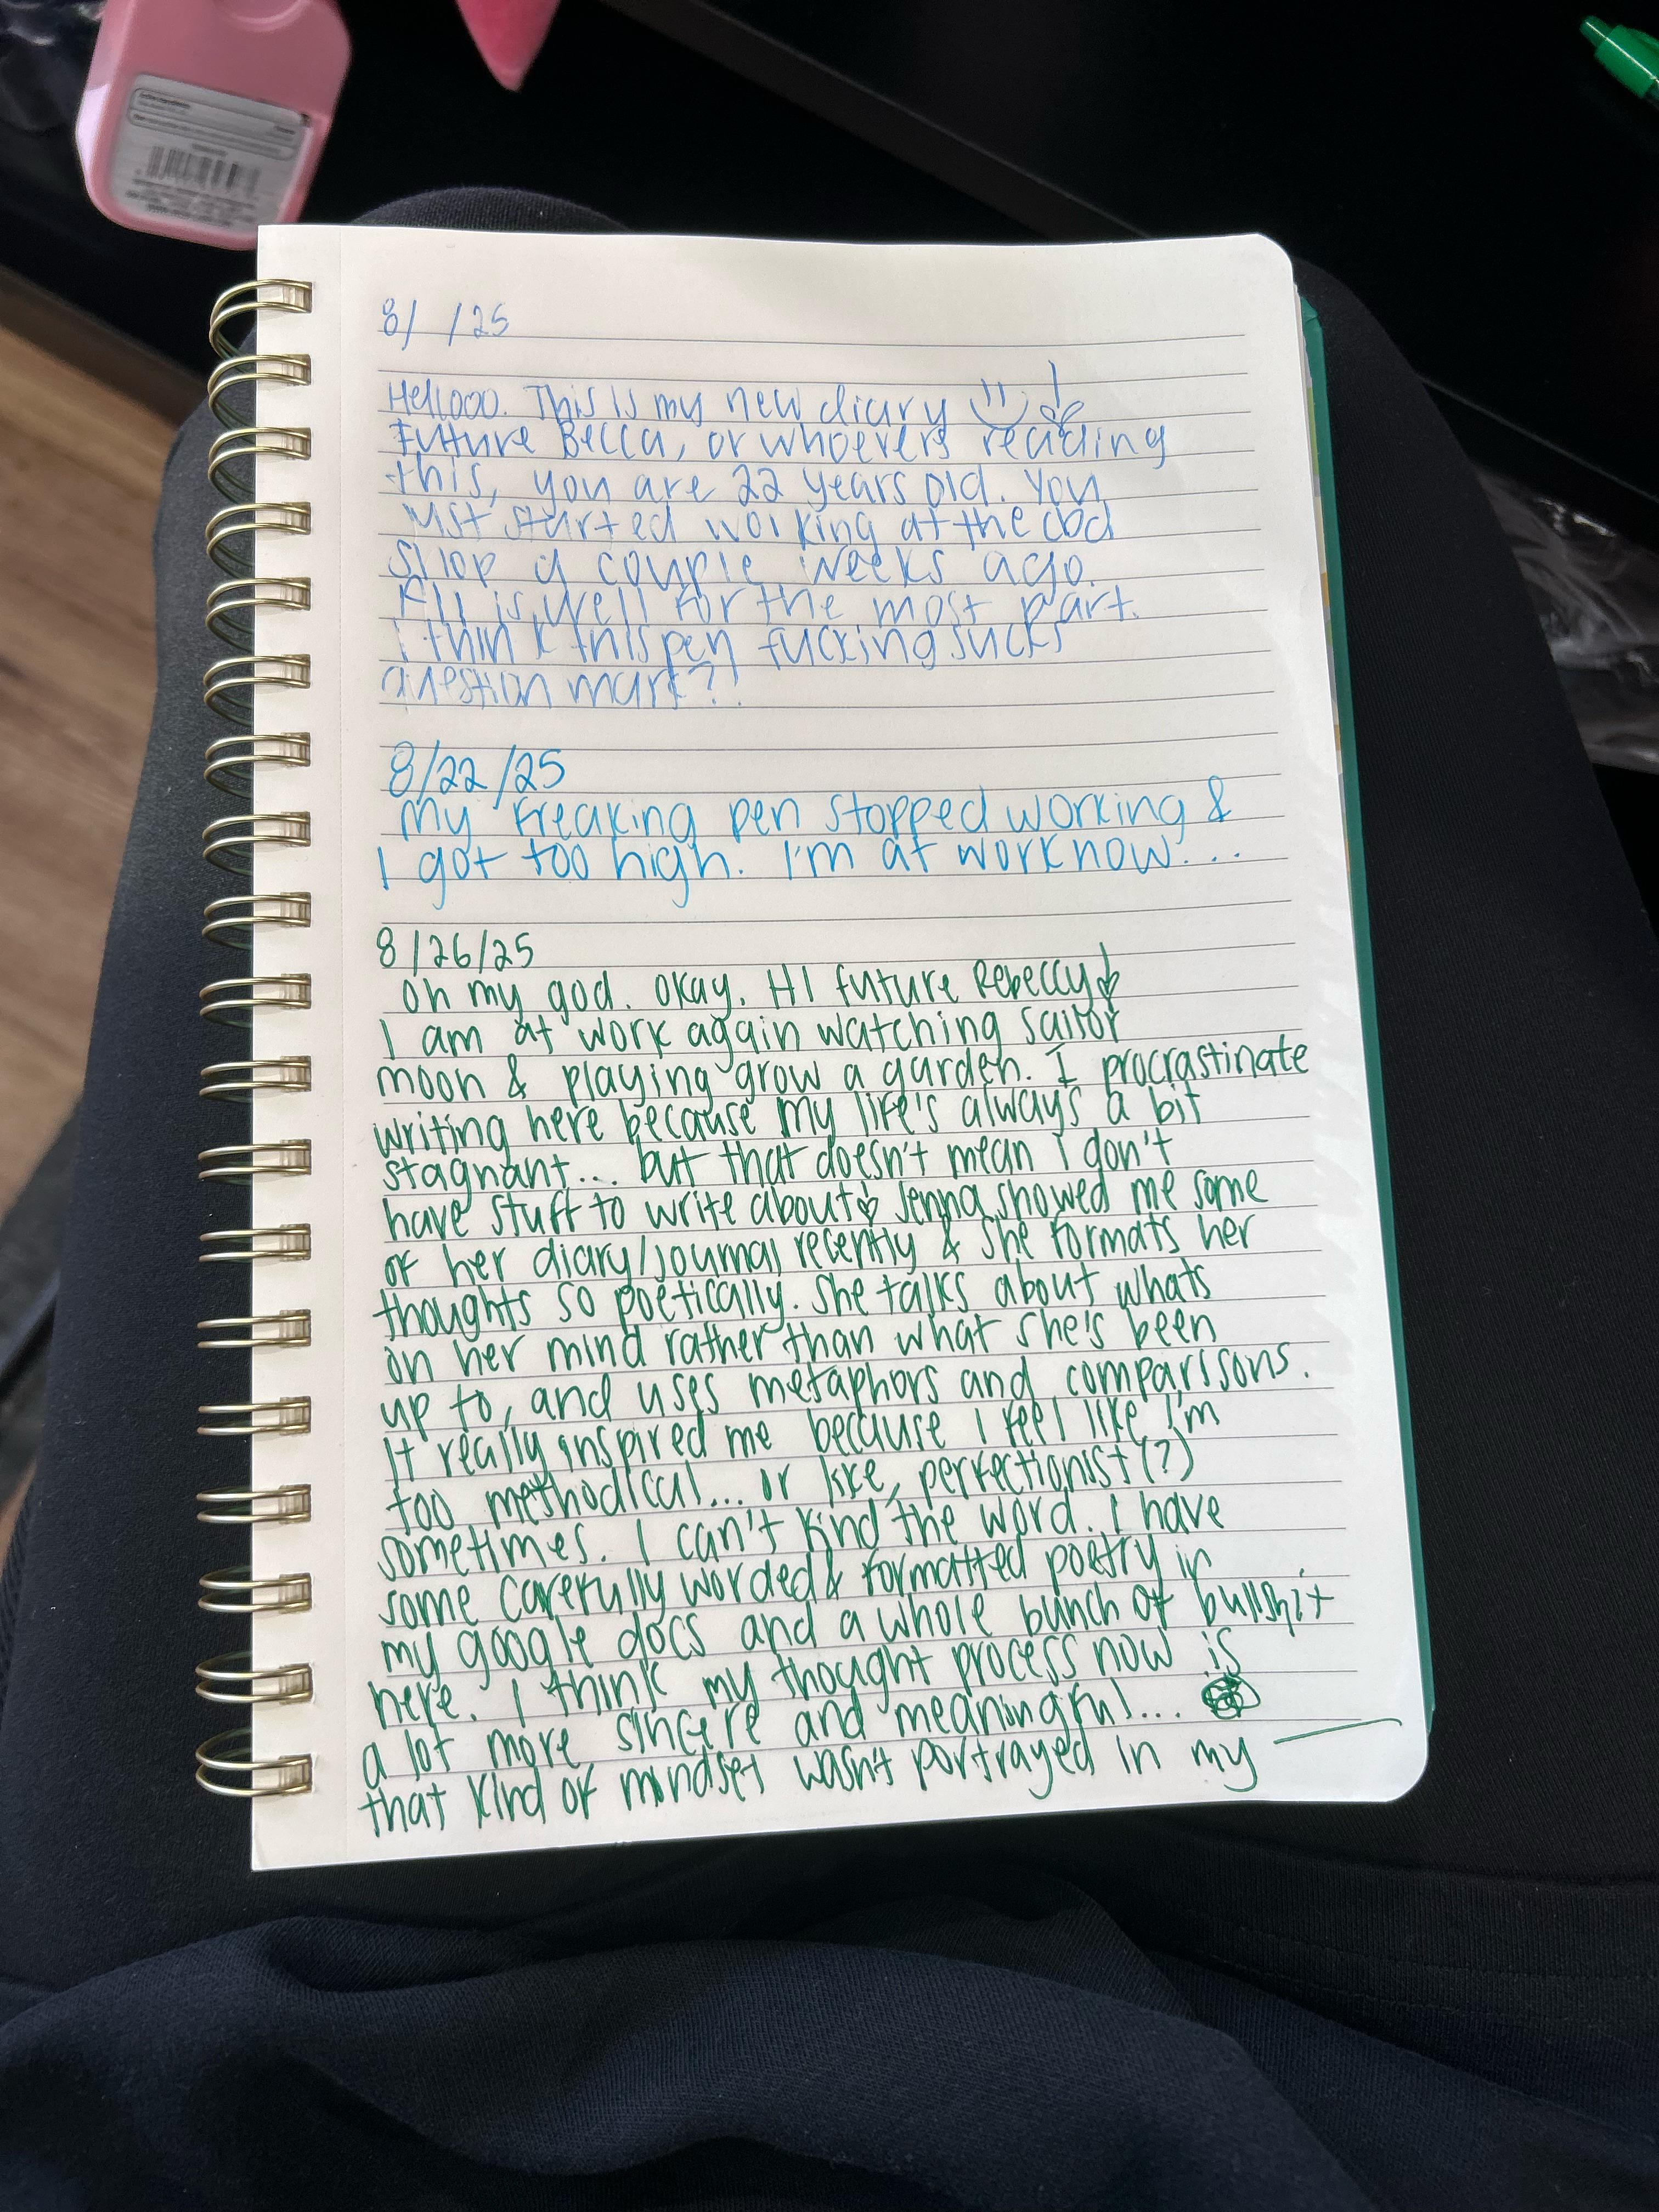 8/ /25
Hellooo. This is my new diary
Future Becca, or whoevers reading
this, you are 22 years old. You
just started working at the cbd
shop a couple weeks ago.
All is well for the most part.
I think this pen fucking sucks
question mark?!
8/22/25
My freaking pen stopped working &
I got too high. I'm at work now...
8/26/25
Oh my god. Okay. HI future Rebeccy
I am at work again watching sailor
moon & playing grow a garden. I procrastinate
writing here because my life's always a bit
stagnant... but that doesn't mean I don't
have stuff to write about Jenna showed me some
of her diary/journal recently & she formats her
thoughts so poetically. She talks about whats
on her mind rather than what she's been
up to, and uses metaphors and comparissons.
It really inspired me because I feel like I'm
too methodical... or like, perfectionist(?)
sometimes. I can't find the word. I have
some carefully worded & formatted poetry in
my google docs and a whole bunch of bullshit
here. I think my thought process now is
a lot more sincere and meaningful...
that kind of mindset wasn't portrayed in my